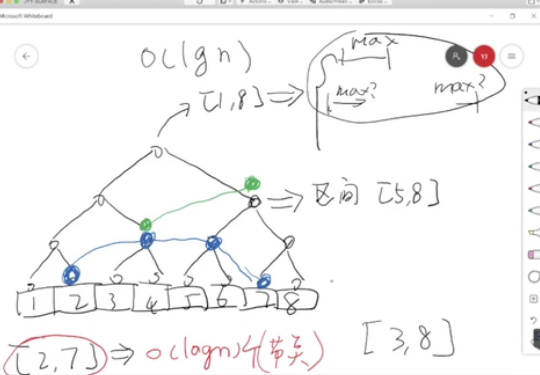 Microsoft Whiteboard
O(lgn)
max
[1,8] ⇒
max? max?
YJ
⇒ 区间 [5,8]
1 2 3 4 5 6 7 8
[2,7] ⇒ O(logn)个(节点) [3,8]